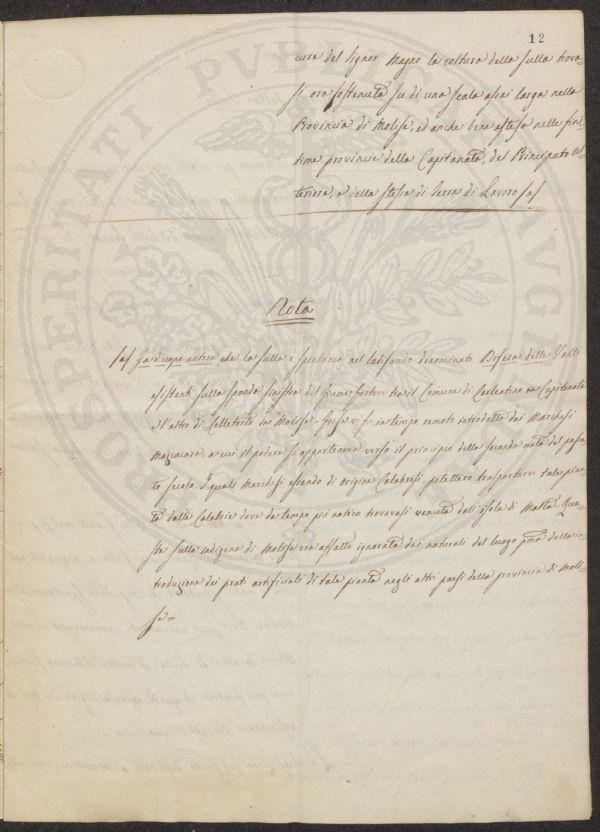 12
cura del Signor Magno la coltura della sulla trova-
si ora sostenuta su di una scala assai larga nella
Provincia di Molise, ed anche bene estesa nelle fini-
time provincie della Capitanata, del Principato Ul-
teriore, e della stessa di Terra di Lavoro (a)
Nota
(a) Fa d'uopo notare che la sulla è spontanea nel latifondo denominato Difesa delle Valli
esistenti sulla sponda sinistra del fiume Fortore tra il Comune di Carlantino in Capitanata
e l'altro di Colletorto in Molise. Forse vi fu in tempo remoto introdotta dai Marchesi
a cui il podere si apparteneva verso il principio della seconda metà del passa-
to secolo. I quali Marchesi essendo di origine Calabresi, potettero trasportarvi tale pian-
ta dalle Calabrie dove da tempo più antico trovavasi venuta dall'isola di Malta. Que-
sta sulla indigena di Molise era affatto ignorata dai naturali del luogo pma della in-
troduzione dei prati artificiali di tale pianta negli altri paesi della provincia di Moli-
se=
PROSPERITATI PUBLICAE AUGENDAE